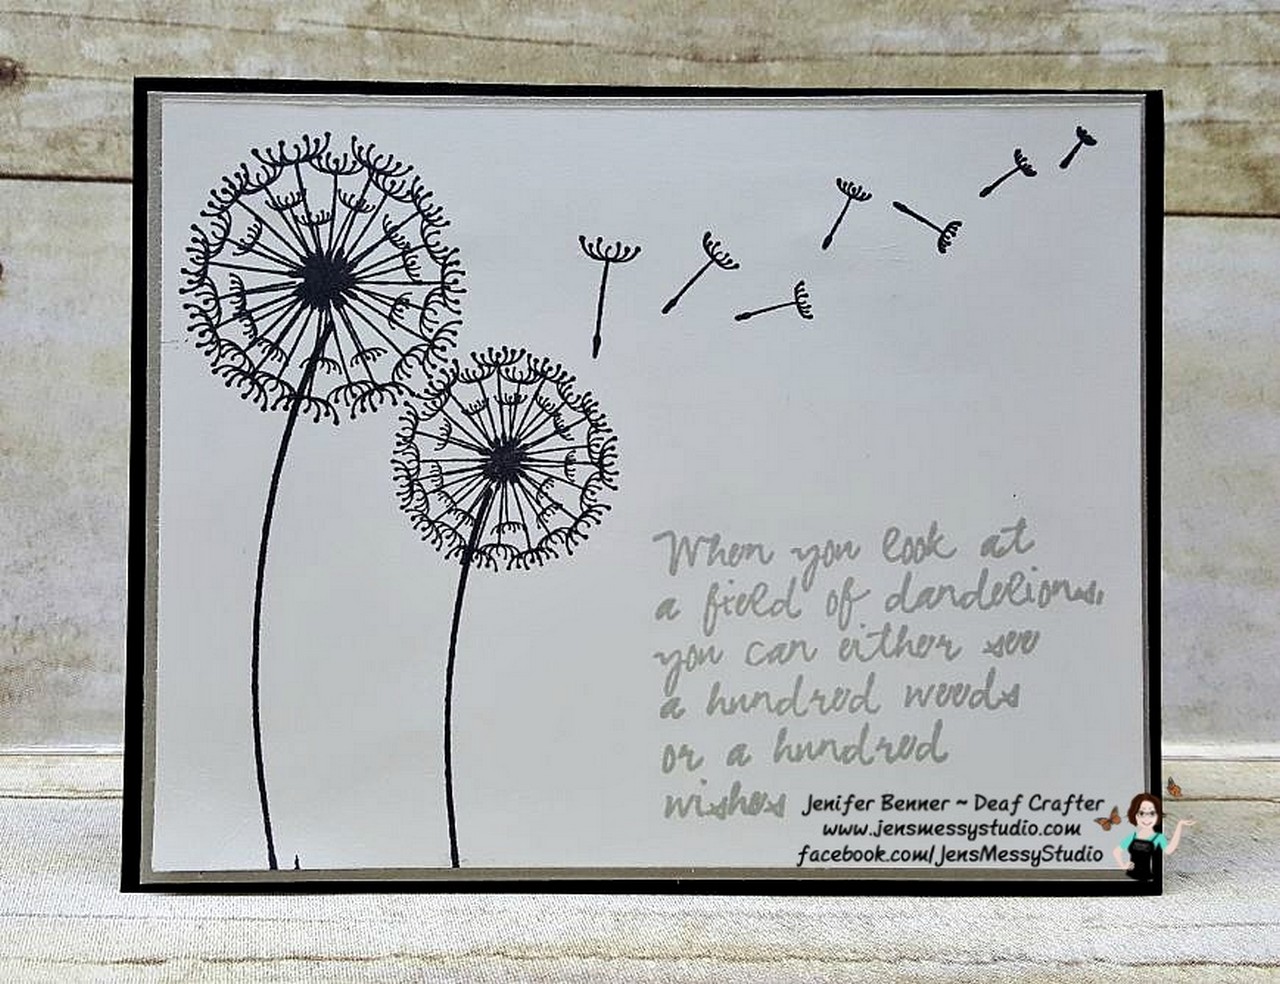 When you look at
a field of dandelions,
you can either see
a hundred weeds
or a hundred
wishes
Jenifer Benner ~ Deaf Crafter
www.jensmessystudio.com
facebook.com/JensMessyStudio